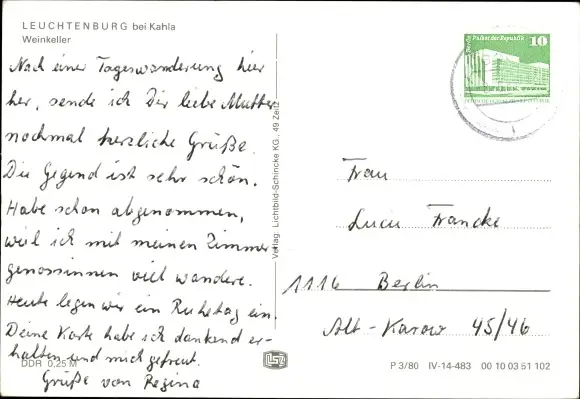 LEUCHTENBURG bei Kahla
Weinkeller
Nach einer Tageswanderung hier
her, sende ich Dir liebe Mutter
nochmal herzliche Grüße.
Die Gegend ist sehr schön.
Habe schon abgenommen,
weil ich mit meinen Zimmer
genossinnen viel wandere.
Heute legen wir ein Ruhetag ein.
Deine Karte habe ich dankend er-
halten und mich gefreut.
Grüße von Regina
DDR 0,25 M
Verlag: Lichtbild-Schincke KG., 49 Zeitz
10
Berlin Palast der Republik
Frau
Lucie Francke
1116 Berlin
Alt-Karow 45/46
P 3/80 IV-14-483 00 10 03 51 102